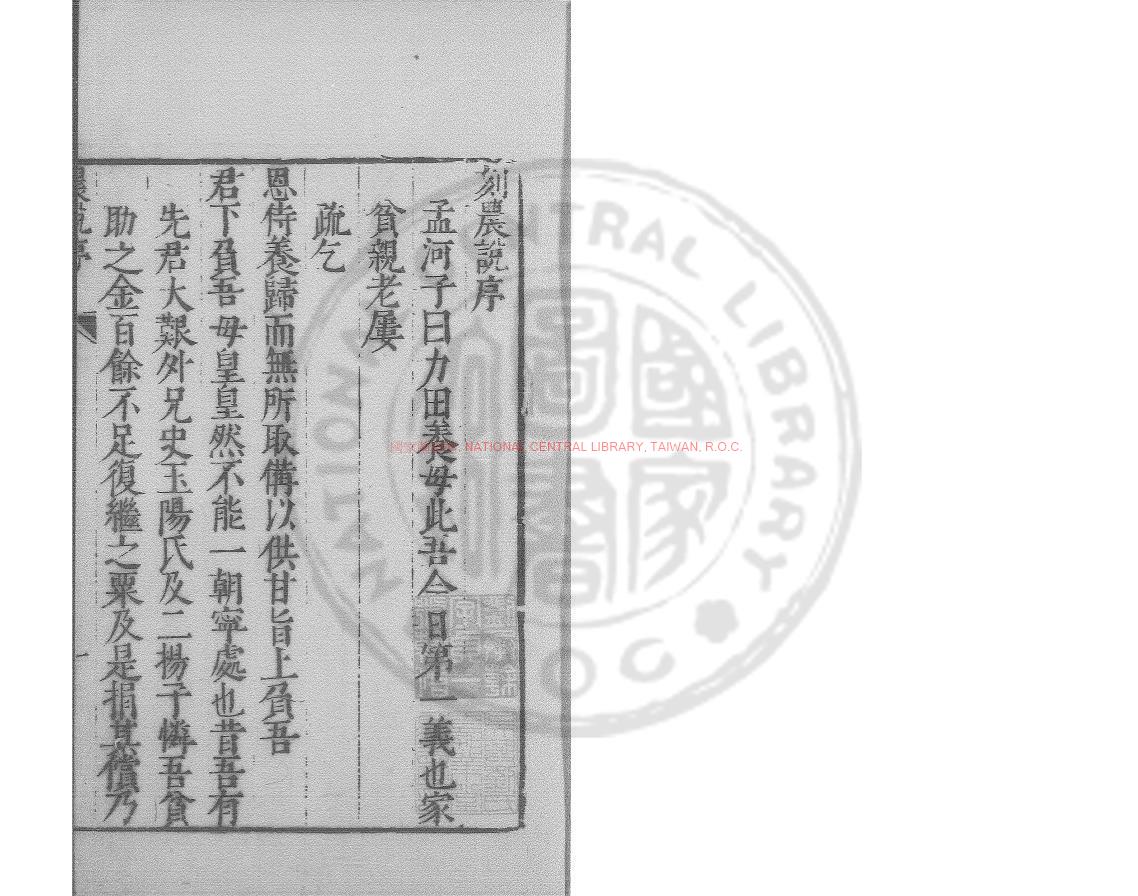 刻農說序
孟河子曰力田養母此吾今日第一義也家
貧親老屢
疏乞
恩侍養歸而無所取備以供甘旨上負吾
君下負吾母皇皇然不能一朝寧處也昔吾有
先君大艱外兄史玉陽氏及二揚子憐吾貧
助之金百餘不足復繼之粟及是捐其償乃
農說序
NATIONAL CENTRAL LIBRARY, TAIWAN, R.O.C.
NATIONAL CENTRAL LIBRARY
R.O.C.
國家圖書館